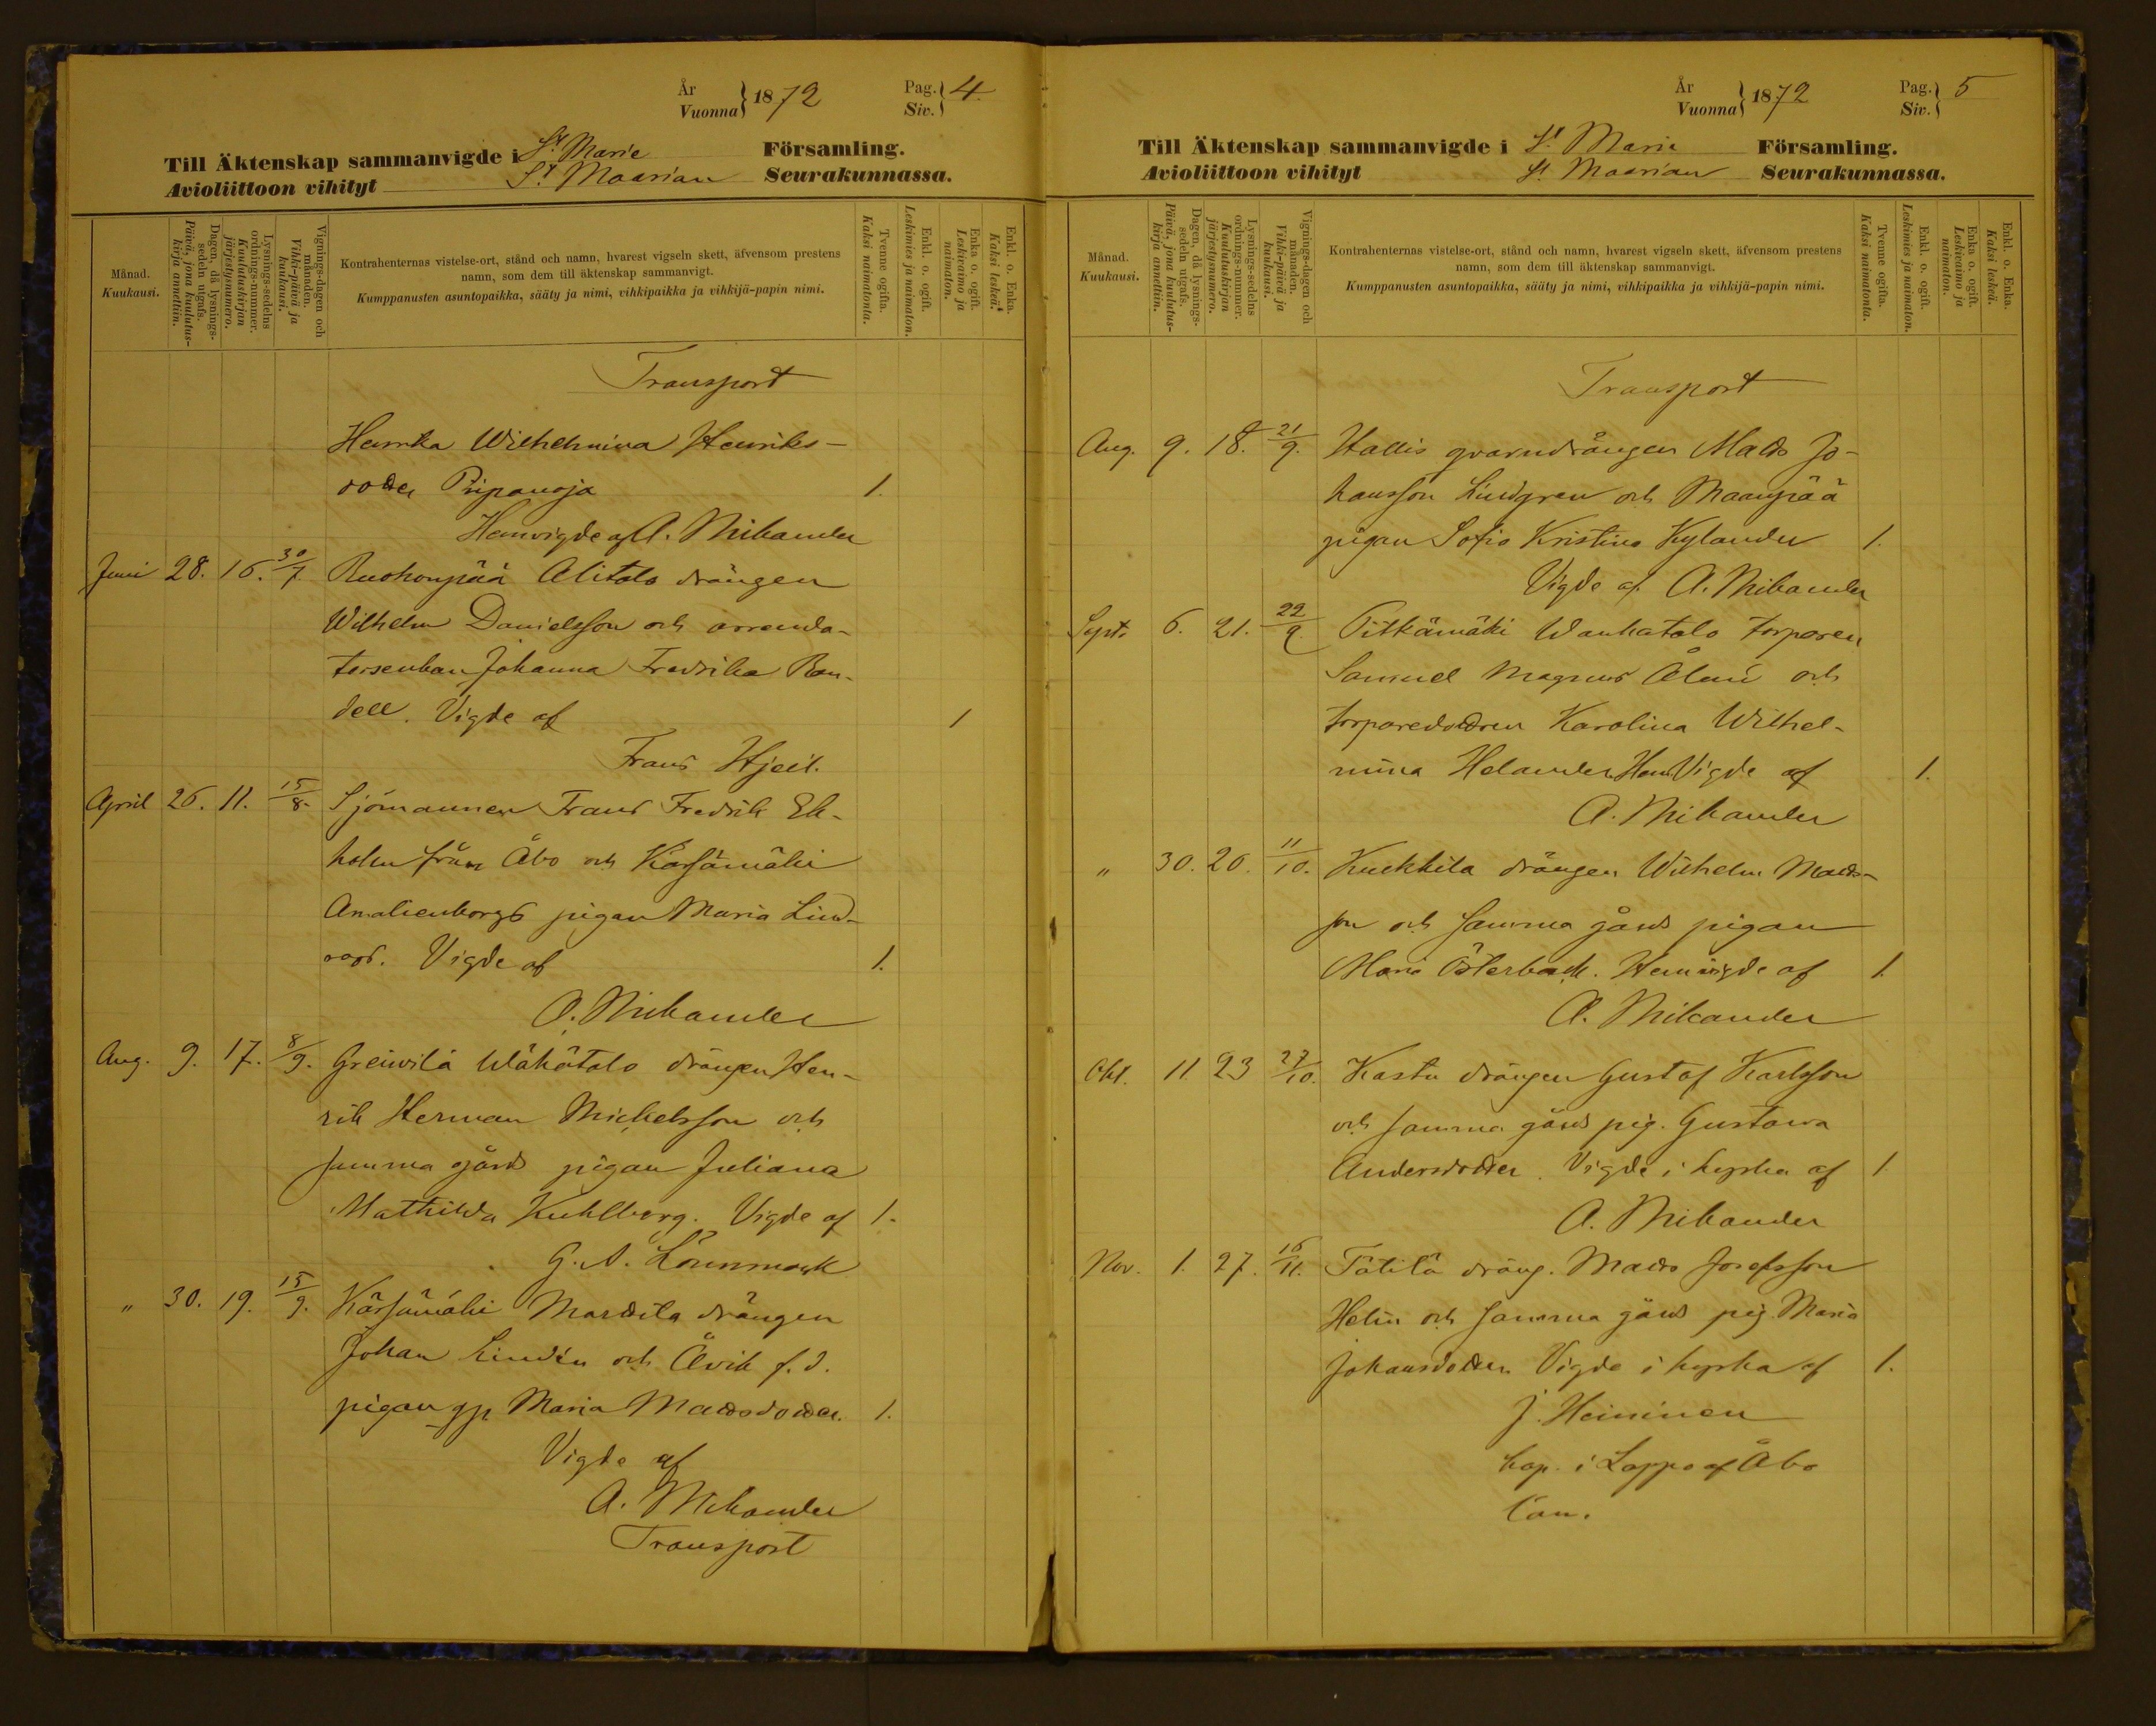 År
Vuonna } 1872
Pag.
Siv. } 4.
Till Äktenskap sammanvigde i St Marie Församling.
Avioliittoon vihityt St Maarian Seurakunnassa.
Månad.
Kuukausi.
Dagen, då lysnings-
sedeln utgafs.
Päivä, jona kuulutus-
kirja annettiin.
Lysnings-sedelns
ordnings-nummer.
Kuulutuskirjan
järjestysnumero.
Vignings-dagen och
månaden.
Vihki-päivä ja
kuukausi.
Kontrahenternas vistelse-ort, stånd och namn, hvarest vigseln skett, äfvensom prestens
namn, som dem till äktenskap sammanvigt.
Kumppanusten asuntopaikka, sääty ja nimi, vihkipaikka ja vihkijä-papin nimi.
Tvenne ogifta.
Kaksi naimatonta.
Enkl. o. ogift.
Leskimies ja naimaton.
Enka o. ogift.
Leskivaimo ja
naimaton.
Enkl. o. Enka.
Kaksi leskeä.
Transport
Henrika Wilhelmina Henriks-
dotter Pripanoja 1.
Hemvigde af A. Nikander
Juni 28. 16. 30/7. Ruohonpää Alitalo drängen
Wilhelm Danielsson och arrenda-
torsenkan Johanna Fredrika Ran-
dell. Vigde af 1
Frans Hjelt.
April 26. 11. 15/8. Sjömannen Frans Fredrik Ek-
holm från Åbo och Kärsämäki
Amalienborgs pigan Maria Lind-
roos. Vigde af 1.
A. Nikander
Aug. 9. 17. 8/9. Greivilä Wähätalo drängen Hen-
rik Herman Michelsson och
samma gårds pigan Juliana
Mathilda Kuhlberg. Vigde af 1.
G. A. Lönnmark
„ 30. 19. 15/9. Kärsämäki Marttila drängen
Johan Lindén och Älvik f. d.
pigan gp Maria Mattsdotter. 1.
Vigde af
A. Nikander
Transport
År
Vuonna } 1872
Pag.
Siv. } 5
Till Äktenskap sammanvigde i St Maria Församling.
Avioliittoon vihityt St Maarian Seurakunnassa.
Månad.
Kuukausi.
Dagen, då lysnings-
sedeln utgafs.
Päivä, jona kuulutus-
kirja annettiin.
Lysnings-sedelns
ordnings-nummer.
Kuulutuskirjan
järjestysnumero.
Vignings-dagen och
månaden.
Vihki-päivä ja
kuukausi.
Kontrahenternas vistelse-ort, stånd och namn, hvarest vigseln skett, äfvensom prestens
namn, som dem till äktenskap sammanvigt.
Kumppanusten asuntopaikka, sääty ja nimi, vihkipaikka ja vihkijä-papin nimi.
Tvenne ogifta.
Kaksi naimatonta.
Enkl. o. ogift.
Leskimies ja naimaton.
Enka o. ogift.
Leskivaimo ja
naimaton.
Enkl. o. Enka.
Kaksi leskeä.
Transport
Aug. 9. 18. 21/9. Hallis qvarndrängen Matts Jo-
hansson Lindgren och Maanpää
pigan Sofia Kristina Kylander 1.
Vigde af A. Nikander
Sept. 6. 21. 22/9. Pitkämäki Wanhatalo torparen
Samuel Magnus Ålenii och
torparedottren Karolina Wilhel-
mina Helander Hem Vigde af 1.
A. Nikander
„ 30. 26. 11/10. Kuckkila drängen Wilhelm Matts-
son och samma gårds pigan
Maria Österback. Hemvigde af 1.
A. Nikander
Okt. 11 23 27/10. Kastu drängen Gustaf Karlsson
och samma gårds pig. Gustava
Andersdotter. Vigde i kyrka af 1
A. Nikander
Nov. 1. 27. 16/11. Tätilä dräng. Matts Josefsson
Helin och samma gårds pig. Maria
Johansdotter. Vigde i kyrka af 1.
J. Heininen
kap. i Loppo af Åbo
Län.